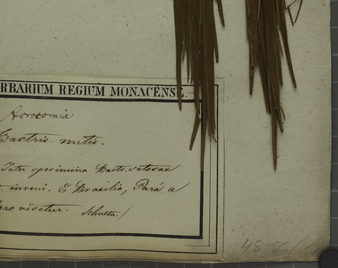 RBARIUM REGIUM MONACENSE.
Acrocomia
Bactris mitis.
Inter specimina Bactr. setosae
inveni. E Brasilia, Pará a
visetur. Schultes.